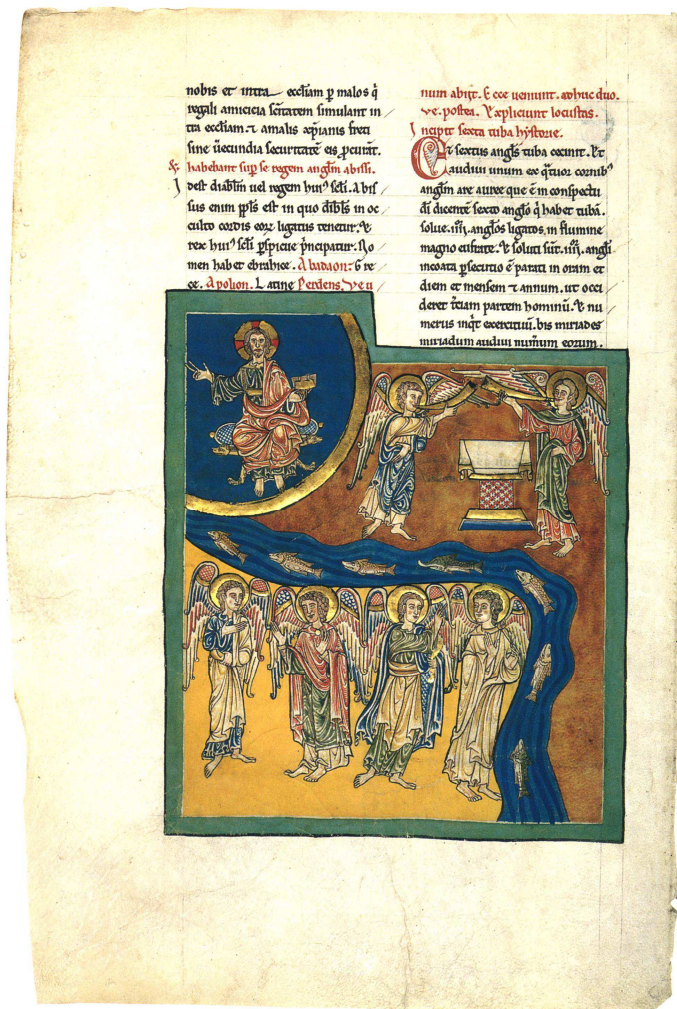 nobis et intra eccl̄iam p̱ malos q̄
regali amicicia sc̄itatem simulant in
tra eccl̄iam. ⁊ amalis xp̄ianis freti
sine uerecundia securitatē eis ꝓcurāt.
& habebant sup̱ se regem angl̄m abissi.
Idest diabl̄m uel regem hui⁹ scl̄i. Abis
sus enim pp̄ls est in quo diābls in oc
culto cordis eoꝝ ligatus tenetur. &
rex hui⁹ scl̄i p̱spicue p̓ncipatur. No
men habet ebrahice. Abadaon. G re
ce. Apolion. Latine Perdens. Ve u
num abijt. Ecce ueniunt. adhuc duo.
ve. postea. Expliciunt locustas.
Incipit sexta tuba hystorie.
Et sextus angl̄s tuba cecinit. Et
audiui unum ex q̓tuor cornib⁹
angl̄m are auree que ē in conspectu
dī dicentē sexto angl̄o q̄ habet tubā.
solue. iiij. angl̄os ligatos in flumine
magno eufrate. & soluti sūt. iiij. angl̄i
incoata p̱secutio ē parati in oram et
diem et mensem et annum. ut occi
deret t̓ciam partem hominū. & nu
merus inq̓t exercituū. bis miriades
miriadum audiui num̄um eorum.